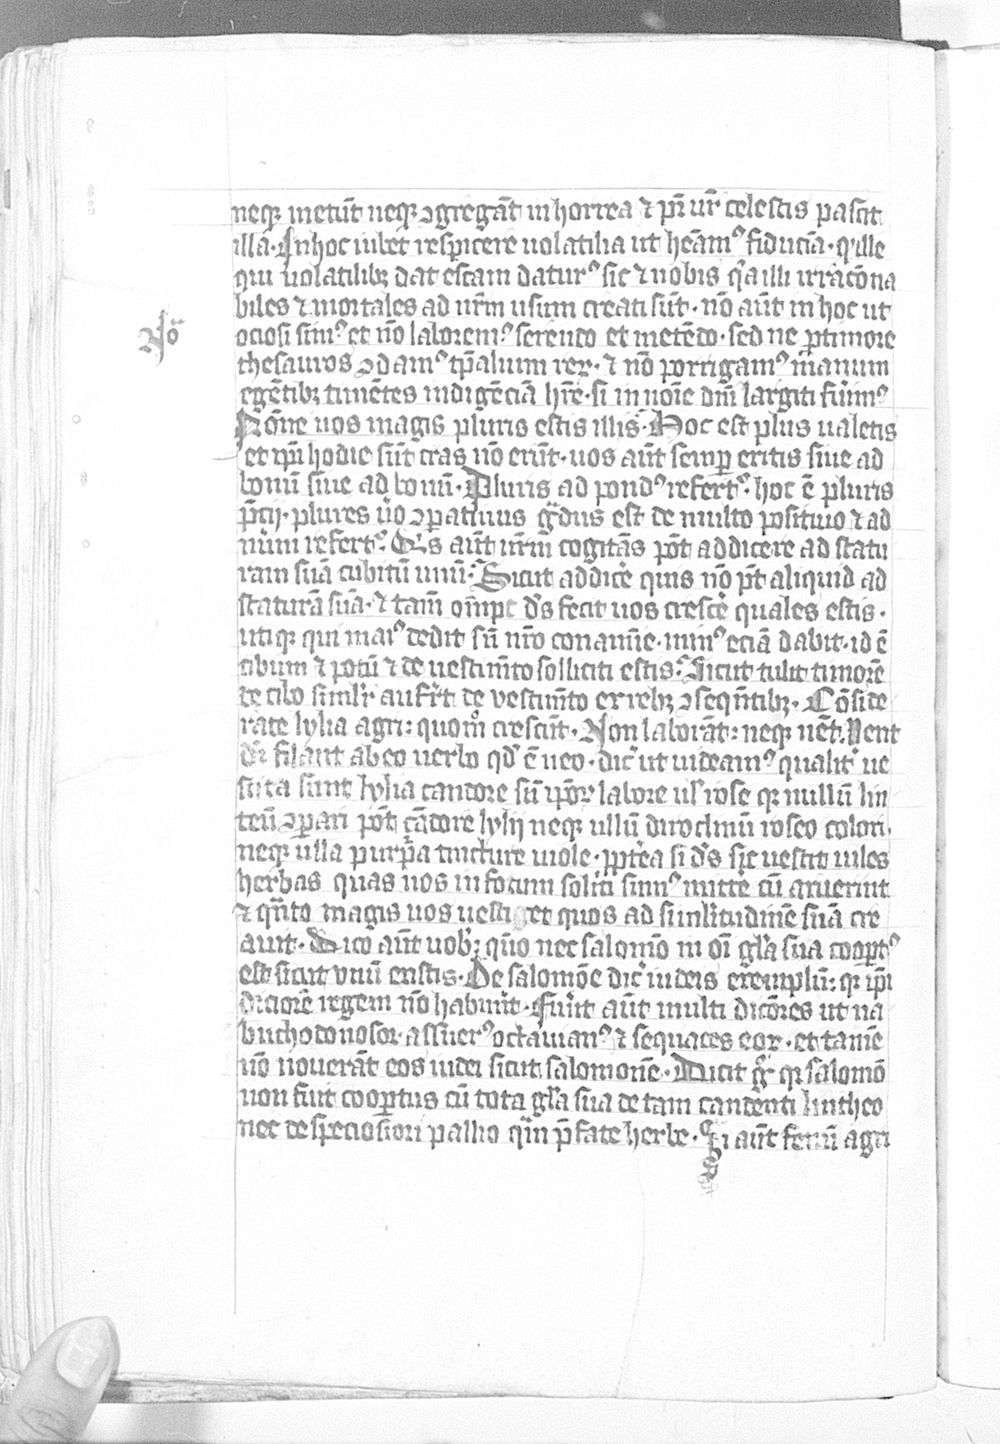 neqꝫ metūt neqꝫ ꝯgregāt in horrea ⁊ pr̄ ur̄ celestis pascit
illa · In hoc iubet respicere uolatilia ut heamꝰ fiduciā · q' ille
qui uolatilibꝫ dat escam daturꝰ sit ⁊ uobis q̄a illi irrac̄ona
biles ⁊ mortales ad nr̄m usum creati sūt · nō aūt in hoc ut
Nō
ociosi simꝰ et nō laboremꝰ serendo et metēdo · sed ne ꝓ timore
thesauros ꝯdamꝰ tp̄alium reꝝ · ⁊ nō porrigamꝰ manum
egētibꝫ timētes indigēciā hr̄e · si in noīe dnī largiti fuimꝰ
Nōne uos magis pluris estis illis · Hoc est plus ualetis
et q̄ hodie sūt cras nō erūt · uos aūt semp̲ eritis siue ad
bonū siue ad bonū · Pluris ad pondꝰ refert' · hoc ē pluris
p̄cij · plures ůo ꝯparatiuus gͣdus est de multo positiuo ⁊ ad
nūm refert' · Qͥs aūt ur̄m cogitās pōt addicere ad statu
ram suā cubitū unū · Sicut addic̓e quis nō pōt aliquid ad
staturā suā · ⁊ tam om̄pe d̓s fecit uos cresc̓e quales estis ·
utiqꝫ qui maiꝰ dedit sn̄ nr̄o conamīe · minꝰ eciā dabit · id ē
cibum ⁊ potū ⁊ de uestim̄to solliciti estis · Sicut tulit timorē
de cibo simlr̄ aufr̄t de vestim̄to ex rebꝫ ꝯseq̄ntibꝫ · Cōside
rate lylia agri : quom̊ crescūt · Non laborāt : neqꝫ nēt · Nent
dr̄ filant ab eo uerbo qd̓ ē neo · dic̓ ut uideamꝰ qualit̓ ue
stita sunt lylia candore sn̄ ip̄oꝝ labore ul̓ rose qꝫ nullū lin
teū ꝯpari pōt cādore lylij neqꝫ ullū diuo clinū roseo colori ·
neqꝫ ulla purp̲a tincture uiole · ꝓpt̓ea si d̓s sic uestit uiles
herbas quas uos in focum soliti sumꝰ mitt̓e cū aruerint
⁊ qn̄to magis uos uesti et quos ad simlitudinē suā cre
auit · Dico aūt uob̓ꝫ qm̄o nec salomō in oī gl̓a sua cooptꝰ
est sicut vnū ex istis · De salomōe dic̓ iudeis exemplū : qꝫ ip̄i
diciorē regem nō habuīt · Fuīt aūt multi dicōres ut na
buchodonosor · assuerꝰ octauianꝰ ⁊ sequaces eoꝝ · et tamē
nō nouerāt eos iudei sicut salomonē · Ducit gͦ qꝫ salomō
non fuit coop̲tus cū tota gl̓a sua de tam candenti lintheo
nec de speciosiori pallio qͣm p̄fate herbe · Si aūt fenū agri